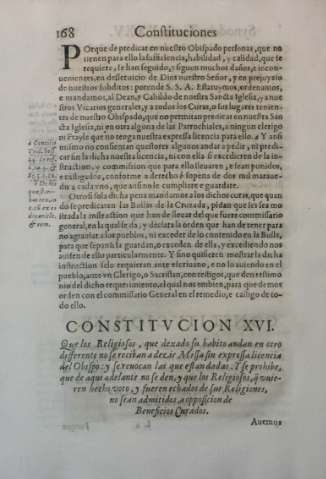 168 Constituciones
Porque de predicar en nuestro Obispado personas, que no
tienen para ello la suficiencia, habilidad, y calidad, que se
requiere, se han seguido, y siguen muchos daños, e incon-
uenientes, en deseruicio de Dios nuestro Señor, y en perjuyzio
de nuestros subditos: porende S. S. A. Estatuymos, ordenamos,
e mandamos, al Dean, y Cabildo de nuestra Sancta Iglesia, y a nue-
stros Vicarios generales, y a todos los Curas, o sus lugares tenien-
tes de nuestro Obispado, que no permitan predicar en nuestra San
cta Iglesia, ni en otra alguna de las Parrochiales, a ningun clerigo
ni frayle que no tenga nuestra expressa licencia para ello. a Y assi
mismo no consientan questores algunos andar a pedir, ni predi-
car sin la dicha nuestra licencia, ni con ella si excedieren de la in-
struction, y commission que para ello lleuaren, e sean punidos,
e castigados, conforme a derecho so pena de dos mil maraue-
dis a cada vno, que ansi no le cumpliere e guardare.
Otrosi so la dicha pena mandamos a los dichos curas, que quan
do se predicaren las Bullas de la Cruzada, pidan que les sea mo
strada la instruction que han de lleuar del que fuere commissario
general, en la qual se da, y declara la orden que han de tener para
no agrauiar a los pueblos, ni exceder de lo contenido en la Bulla,
para que sepan si la guardan, o exceden de ella, y excediendo nos
auisen de ello particularmente. Y si no quisieren mostrar la dicha
instruction selo requieran ante escriuano, e no lo auiendo en el
pueblo, ante vn Clerigo, o Sacristan, con testigos, que den testimo
nio del dicho requerimiento, al qual nos embien, para que demos
orden con el commissario General en el remedio, e castigo de to-
do ello.
CONSTITVCION XVI.
Que los Religiosos, que dexado su habito andan en otro
differente no se reciban a dezir Missa sin expressa licencia
del Obispo: y se reuocan las que estan dadas. Y se prohibe,
que de aqui adelante no se den, y que los Religiosos, q̃ vuie-
ren hecho voto, y fueren echados de sus Religiones,
no sean admitidos, a opposicion de
Beneficios Curados.